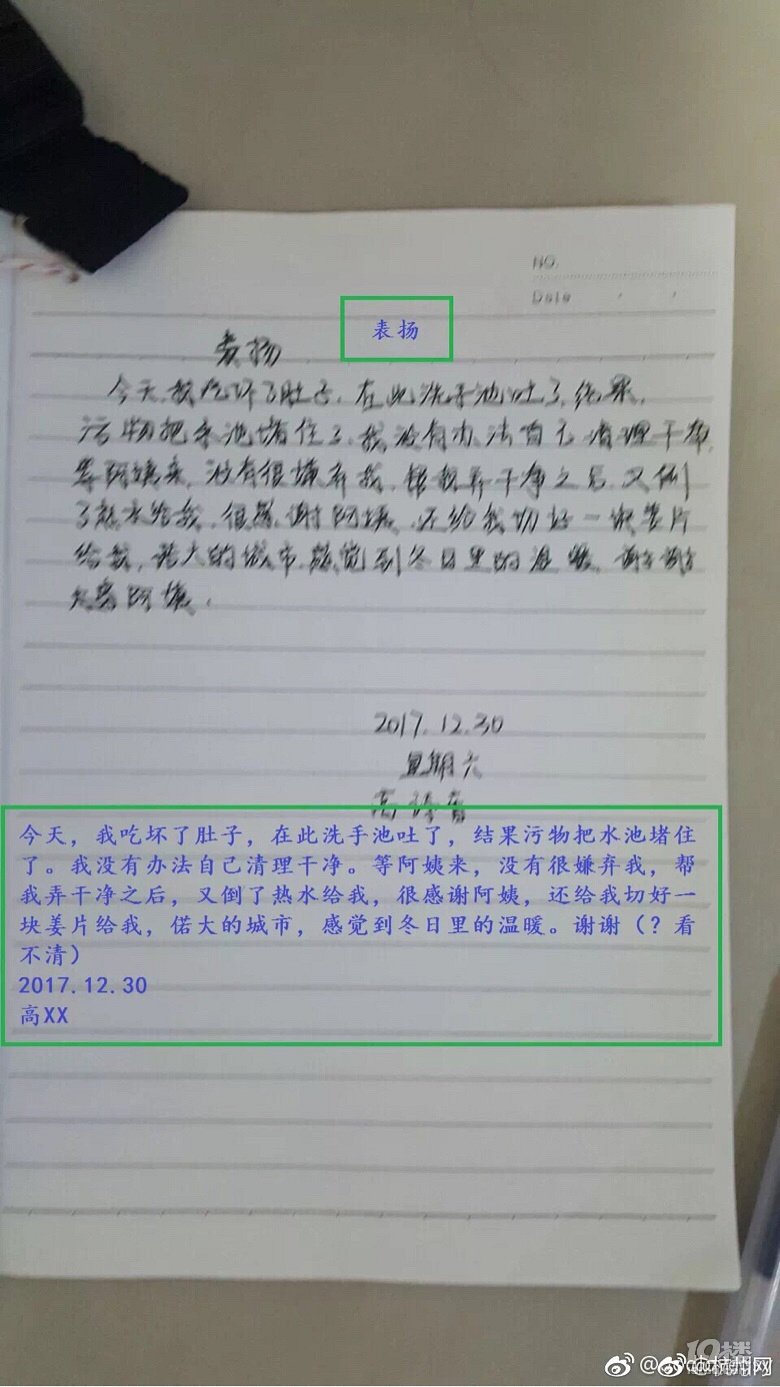 NO.
Date
表扬
表扬
今天,我吃坏了肚子,在此洗手池吐了,结果,
污物把水池堵住了,我没有办法自己清理干净,
等阿姨来,没有很嫌弃我,帮我弄干净之后,又倒
了热水给我,很感谢阿姨,还给我切好一块姜片
给我,偌大的城市,感觉到冬日里的温暖,谢谢
阿姨.
2017.12.30
星期六
高
今天,我吃坏了肚子,在此洗手池吐了,结果污物把水池堵住
了。我没有办法自己清理干净。等阿姨来,没有很嫌弃我,帮
我弄干净之后,又倒了热水给我,很感谢阿姨,还给我切好一
块姜片给我,偌大的城市,感觉到冬日里的温暖。谢谢(?看
不清)
2017.12.30
高XX
19楼
杭州网